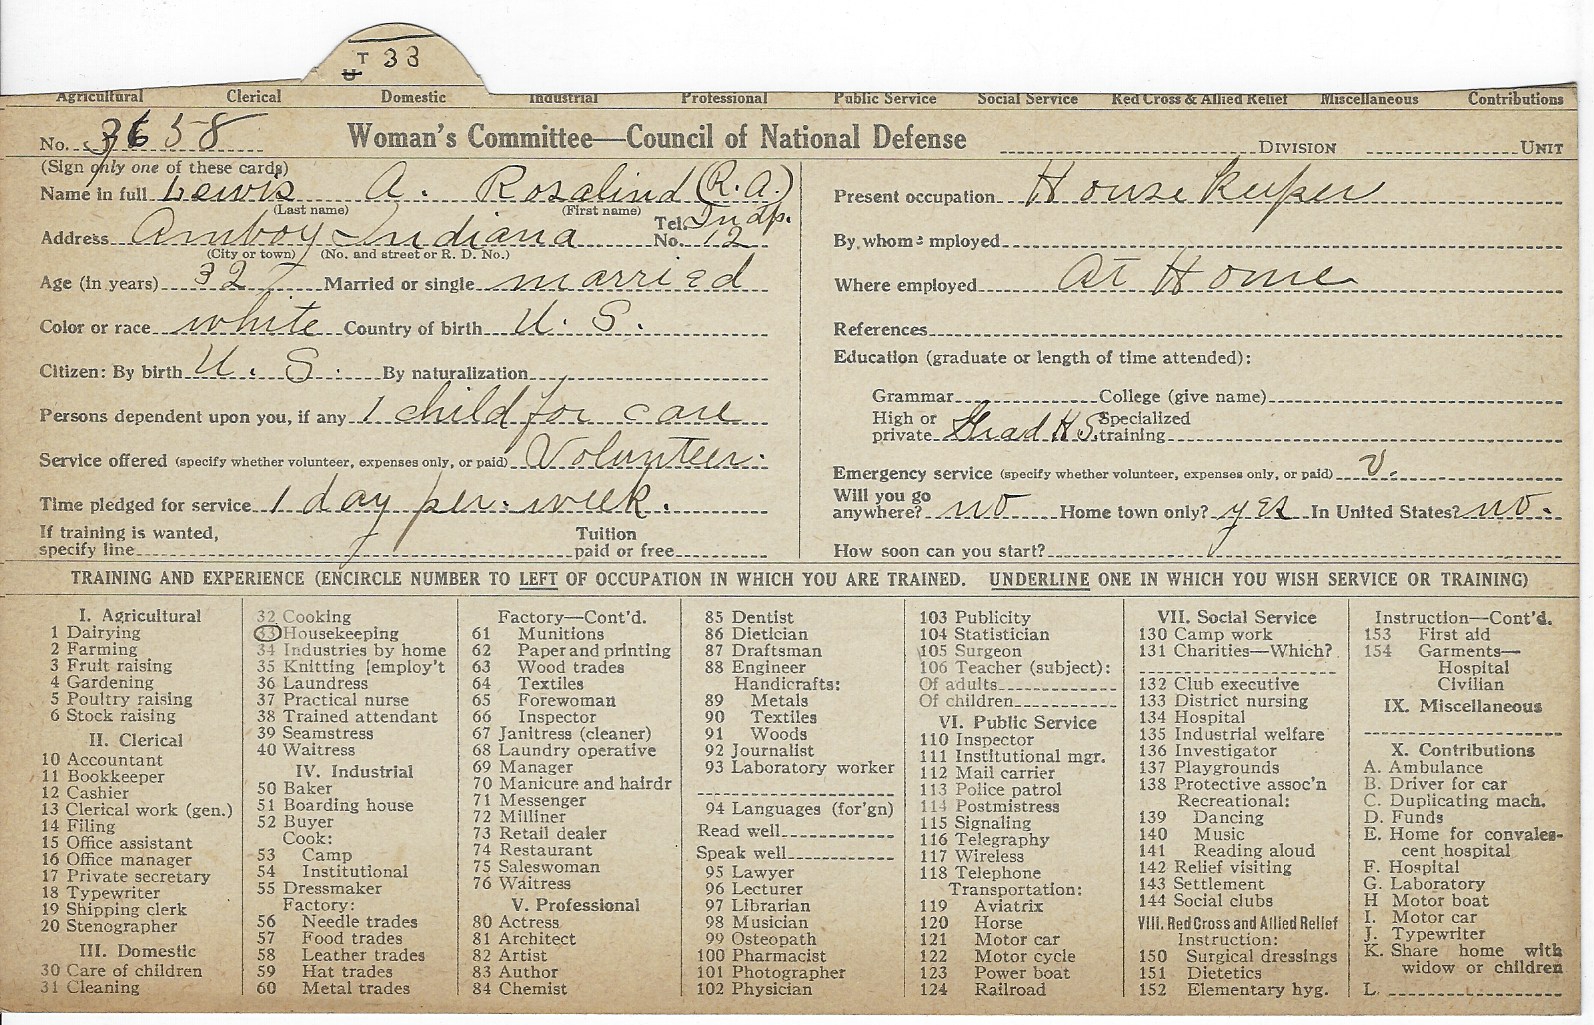 T 33
U
Agricultural Clerical Domestic Industrial Professional Public Service Social Service Red Cross & Allied Relief Miscellaneous Contributions
No. 3658 Woman's Committee—Council of National Defense DIVISION UNIT
(Sign only one of these cards)
Name in full Lewis A. Rosalind (R.A.)
(Last name) (First name)
Address Amboy Indiana Tel. No. Indp. 12
(City or town) (No. and street or R. D. No.)
Age (in years) 32 Married or single married
Color or race white Country of birth U. S.
Citizen: By birth U. S. By naturalization
Persons dependent upon you, if any 1 child for care
Service offered (specify whether volunteer, expenses only, or paid) Volunteer.
Time pledged for service 1 day per. week.
If training is wanted, specify line Tuition paid or free
Present occupation Housekeeper
By whom employed
Where employed At Home
References
Education (graduate or length of time attended):
Grammar College (give name)
High or private Grad H.S. Specialized training
Emergency service (specify whether volunteer, expenses only, or paid) v.
Will you go anywhere? no Home town only? yes In United States? no.
How soon can you start?
TRAINING AND EXPERIENCE (ENCIRCLE NUMBER TO LEFT OF OCCUPATION IN WHICH YOU ARE TRAINED. UNDERLINE ONE IN WHICH YOU WISH SERVICE OR TRAINING)
I. Agricultural
1 Dairying
2 Farming
3 Fruit raising
4 Gardening
5 Poultry raising
6 Stock raising
II. Clerical
10 Accountant
11 Bookkeeper
12 Cashier
13 Clerical work (gen.)
14 Filing
15 Office assistant
16 Office manager
17 Private secretary
18 Typewriter
19 Shipping clerk
20 Stenographer
III. Domestic
30 Care of children
31 Cleaning
32 Cooking
33 Housekeeping
34 Industries by home
35 Knitting [employ't
36 Laundress
37 Practical nurse
38 Trained attendant
39 Seamstress
40 Waitress
IV. Industrial
50 Baker
51 Boarding house
52 Buyer
Cook:
53 Camp
54 Institutional
55 Dressmaker
Factory:
56 Needle trades
57 Food trades
58 Leather trades
59 Hat trades
60 Metal trades
Factory—Cont'd.
61 Munitions
62 Paper and printing
63 Wood trades
64 Textiles
65 Forewoman
66 Inspector
67 Janitress (cleaner)
68 Laundry operative
69 Manager
70 Manicure and hairdr
71 Messenger
72 Milliner
73 Retail dealer
74 Restaurant
75 Saleswoman
76 Waitress
V. Professional
80 Actress
81 Architect
82 Artist
83 Author
84 Chemist
85 Dentist
86 Dietician
87 Draftsman
88 Engineer
Handicrafts:
89 Metals
90 Textiles
91 Woods
92 Journalist
93 Laboratory worker
94 Languages (for'gn)
Read well
Speak well
95 Lawyer
96 Lecturer
97 Librarian
98 Musician
99 Osteopath
100 Pharmacist
101 Photographer
102 Physician
103 Publicity
104 Statistician
105 Surgeon
106 Teacher (subject):
Of adults
Of children
VI. Public Service
110 Inspector
111 Institutional mgr.
112 Mail carrier
113 Police patrol
114 Postmistress
115 Signaling
116 Telegraphy
117 Wireless
118 Telephone
Transportation:
119 Aviatrix
120 Horse
121 Motor car
122 Motor cycle
123 Power boat
124 Railroad
VII. Social Service
130 Camp work
131 Charities—Which?
132 Club executive
133 District nursing
134 Hospital
135 Industrial welfare
136 Investigator
137 Playgrounds
138 Protective assoc'n
Recreational:
139 Dancing
140 Music
141 Reading aloud
142 Relief visiting
143 Settlement
144 Social clubs
VIII. Red Cross and Allied Relief
Instruction:
150 Surgical dressings
151 Dietetics
152 Elementary hyg.
Instruction—Cont'd.
153 First aid
154 Garments—
Hospital
Civilian
IX. Miscellaneous
X. Contributions
A. Ambulance
B. Driver for car
C. Duplicating mach.
D. Funds
E. Home for convales-
cent hospital
F. Hospital
G. Laboratory
H Motor boat
I. Motor car
J. Typewriter
K. Share home with
widow or children
L.